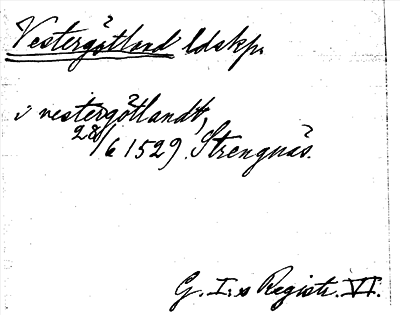 Vestergötland ldskp.
i vestergötlandt,
28/6 1529. Strengnäs.
G. I:s Registr. VI.